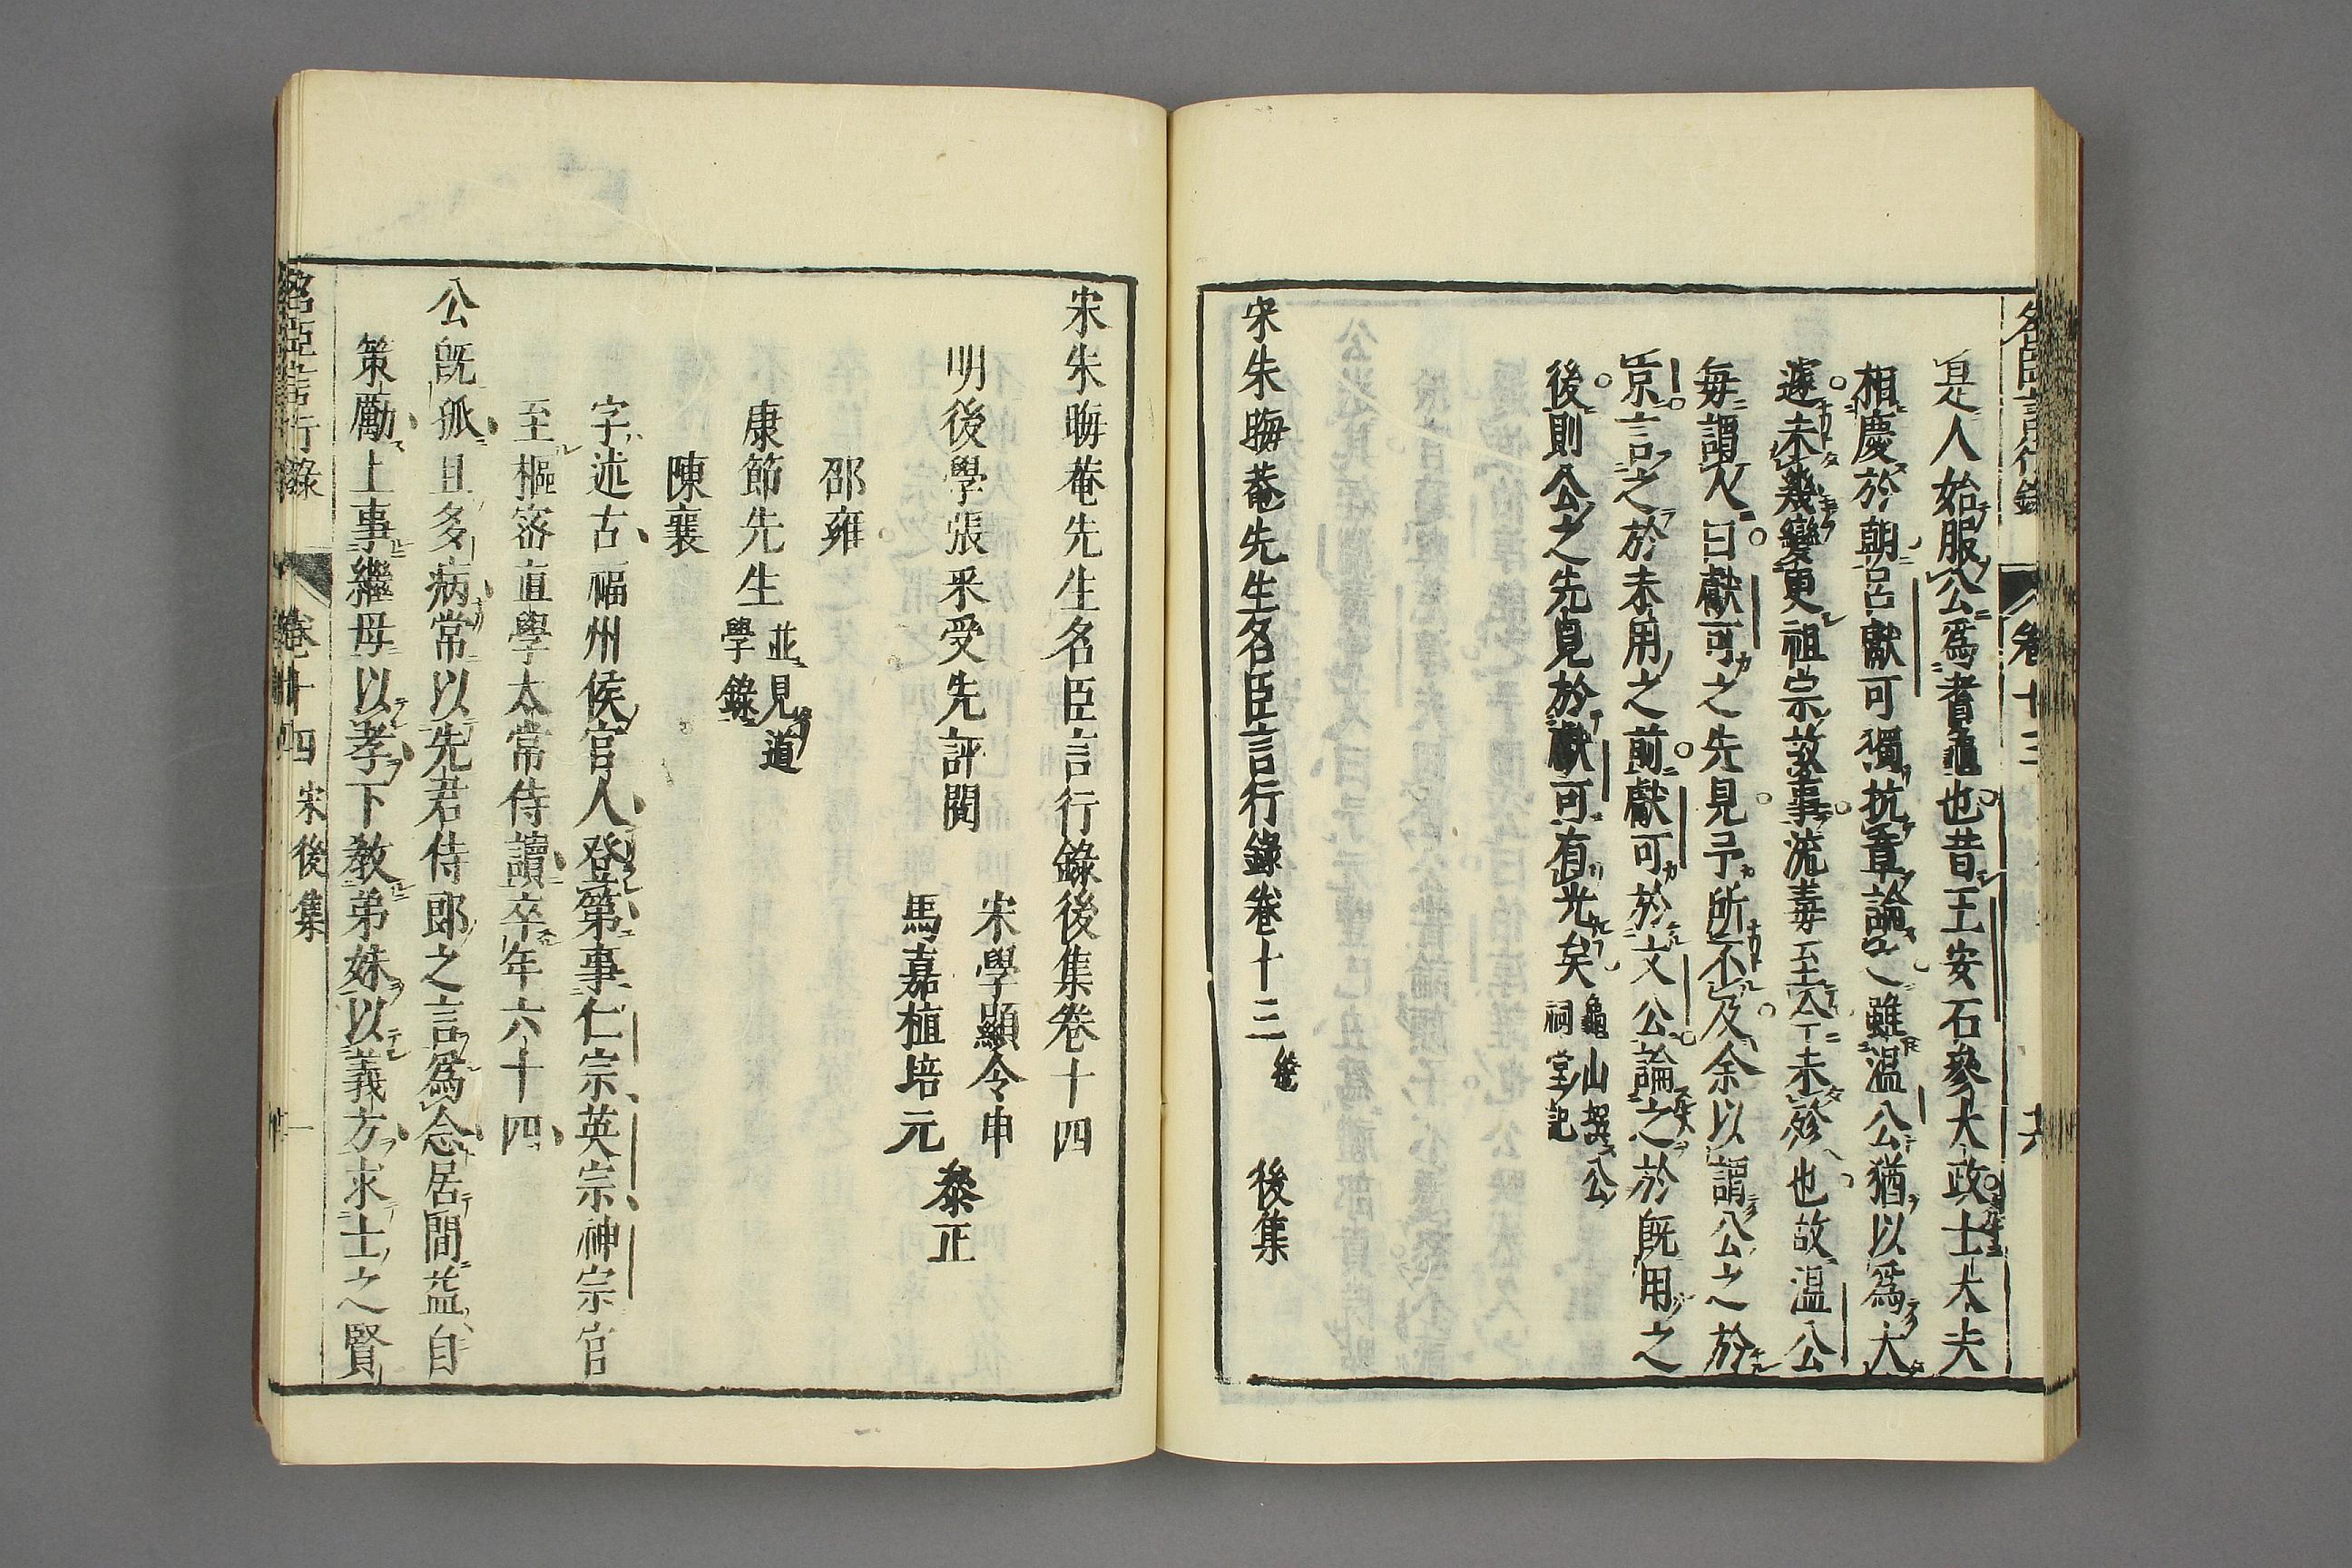 是人始服公爲蓍龜也昔王安石參大政士大夫
相慶於朝呂獻可獨抗章論之雖溫公猶以爲大
遽未幾變更祖宗故事流毒至今未殄也故溫公
每謂人曰獻可之先見予所不及余以謂公之於
京言之於未用之前獻可於文公論之於既用之
後則公之先見於獻可有光矣 龜山撰公祠堂記
宋朱晦菴先生名臣言行錄卷十三終 後集
宋朱晦菴先生名臣言行錄後集卷十四
明後學張采受先評閱
宋學顯令申
馬嘉植培元
參正
邵雍
康節先生 並見道學錄
陳襄
字述古福州候官人登第事仁宗英宗神宗官
至樞密直學太常侍讀卒年六十四
公既孤且多病常以先君侍郎之言爲念居間益自
策勵上事繼母以孝下教弟妹以義方求士之賢
名臣言行錄 卷十四 宋後集 一